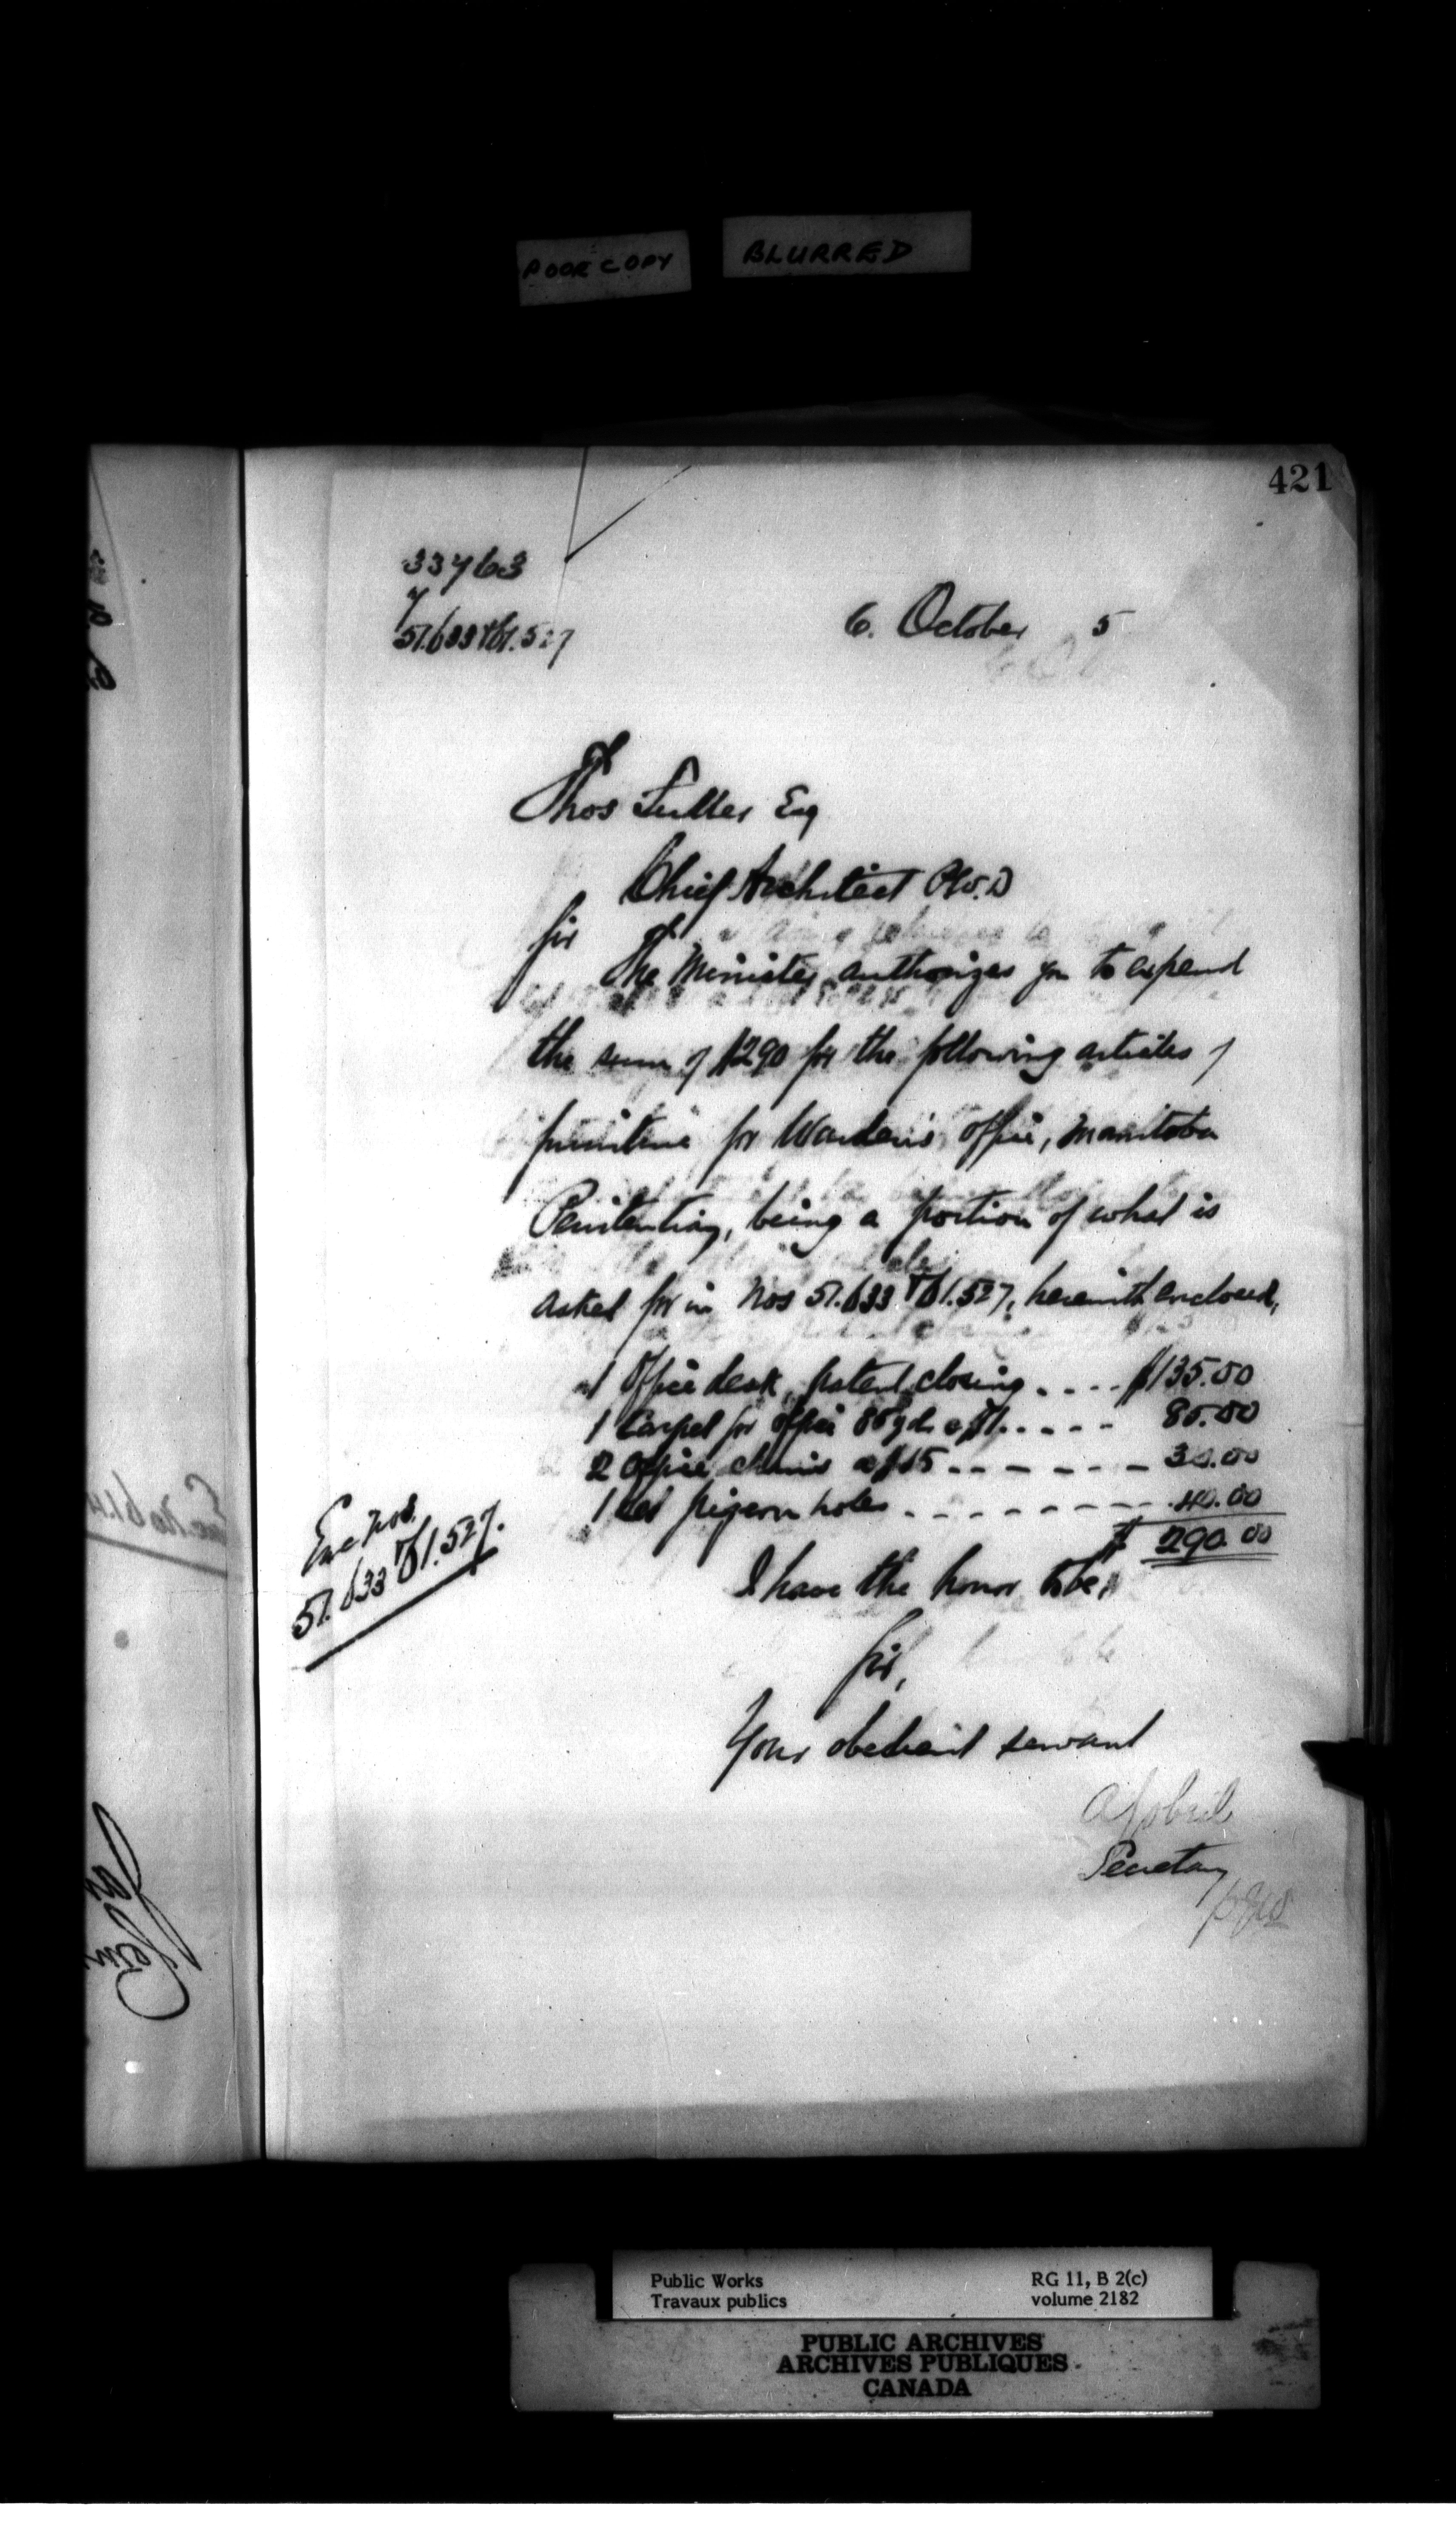 POOR COPY BLURRED
421
33763
51.633 & 61.527
6. October 5
Thos Fuller Esq
Chief Architect P.W.D
Sir
The Minister authorizes you to expend
the sum of $290 for the following articles of
furniture for Warden's office, Manitoba
Penitentiary, being a portion of what is
asked for in Nos 51.633 & 61.527, herewith enclosed,
1 Office desk, patent closing .... $135.00
1 Carpet for office 85 yds @ $1..... 85.00
2 Office chairs @ $15 ------- 30.00
1 set pigeon holes ......... 40.00
$ 290.00
Enc Nos.
51.633 & 61.527.
I have the honor to be,
Sir,
Your obedient servant
A Gobeil
Secretary
Public Works
Travaux publics
RG 11, B 2(c)
volume 2182
PUBLIC ARCHIVES
ARCHIVES PUBLIQUES
CANADA